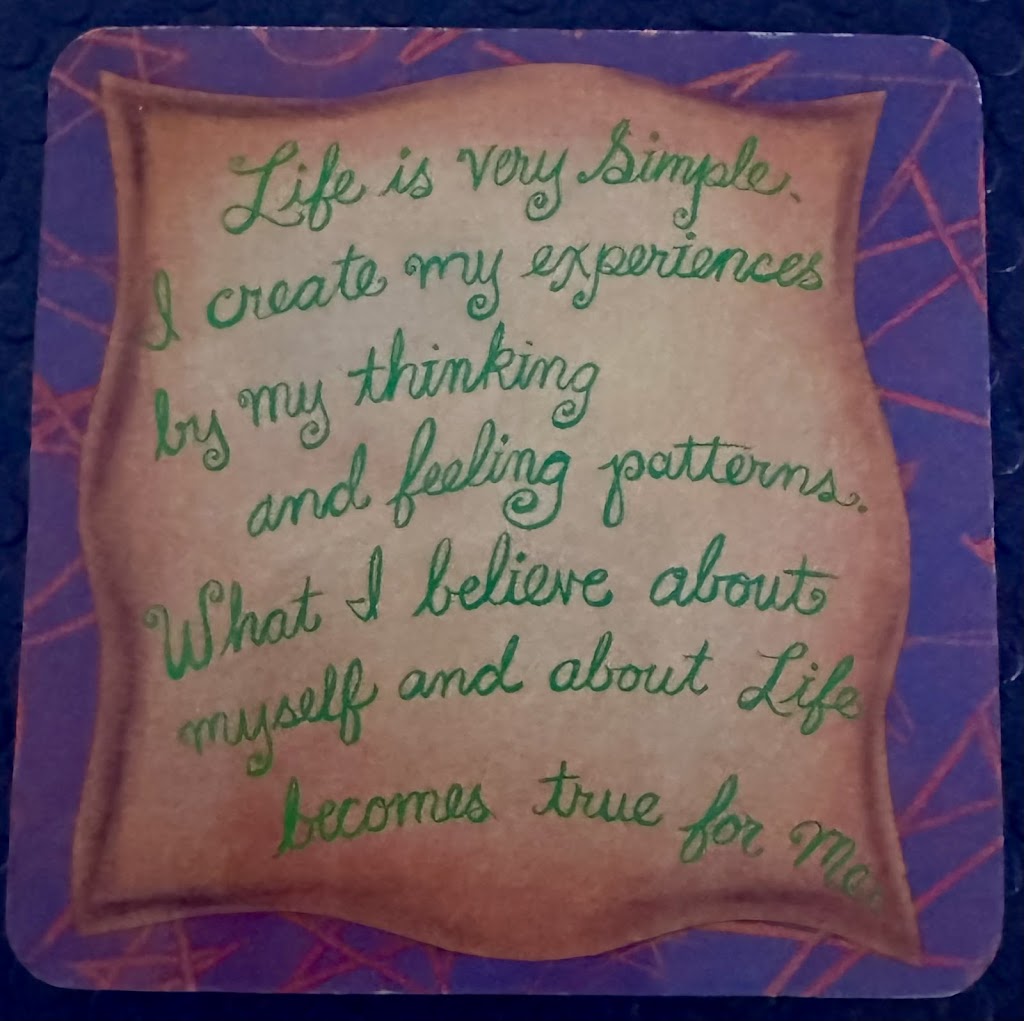 Life is very Simple.
I create my experiences
by my thinking
and feeling patterns.
What I believe about
myself and about Life
becomes true for Me.